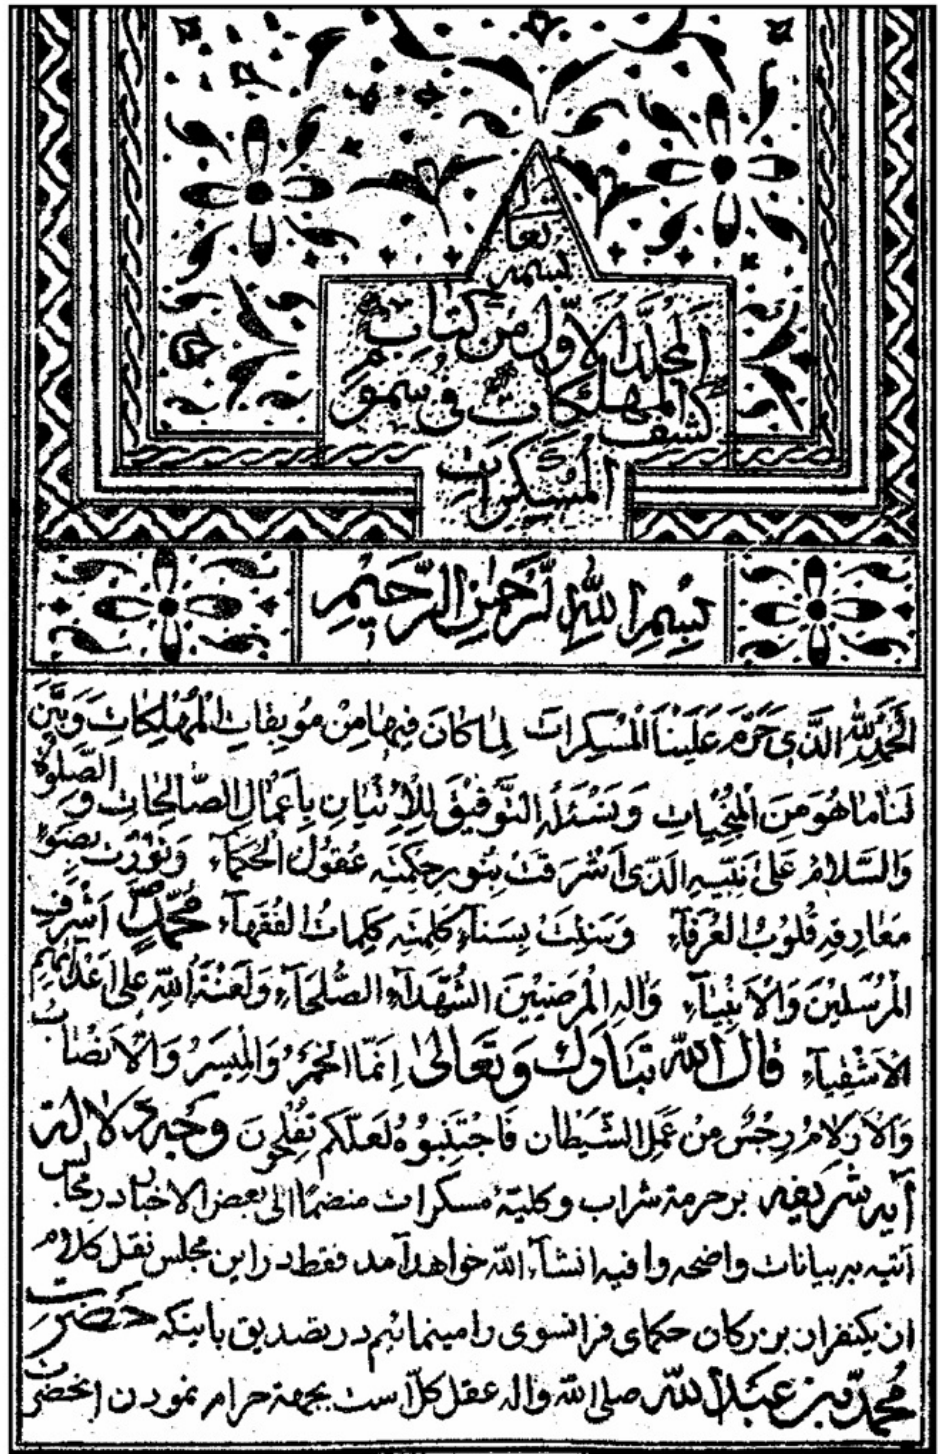 بسمه
تعالی
المجلّد الاوّل من کتاب
کشف المهلکات فی سموم
المسکرات
بِسْمِ اللهِ الرَّحْمٰنِ الرَّحیٖمِ
اَلحَمدُ للهِ الَّذی حَرَّمَ عَلَینَا المُسکِرات لِمٰا کَانَ فیهٰا مِنْ مُوبِقاتِ المُهْلِکاتِ وَبَیَّنَ
لَنٰا مٰا هُوَ مِنَ المُنجِیاتِ وَنَسْئَلُهُ التَّوفیقَ لِلاِتْیٰانِ بِاَعْمٰالِ الصّٰالِحٰاتِ وَ الصَّلوٰةُ
وَالسَّلامُ عَلیٰ نَبیّهِ الَّذی اَشْرَقَتْ بِنُورِ حِکمَتِهِ عُقُولُ الحُکَمآءِ وَنَوَّرَتْ بِضَوءِ
مَعٰارِفِهِ قُلُوبُ العُرَفآءِ وَ بِسَنآءِ کَلِمَتِهِ کَلِمٰاتُ الفُقَهآءِ مُحَمَّدٍ اَشْرَفِ
المُرْسَلینَ وَالاَنْبِیٰآءِ وَالِهِ المَرضیّینَ الشُّهَدآءِ الصُّلَحآءِ وَلَعْنَةُ اللهِ عَلی اَعْدآئِهِمِ
الاَشْقِیآءِ قالَ اللهُ تَبٰارَکَ وَتَعٰالیٰ اِنَّمَا الخَمْرُ وَالمَیْسِرُ وَالاَنصٰابُ
وَالاَزلامُ رِجْسٌ مِنْ عَمَلِ الشَّیطٰان فَاجْتَنِبُوهُ لَعَلَّکُم تُفْلِحُونَ وَجه دلالة
آیه شریفه بر حرمة شراب و کلیّهٔ مسکرات منضمّاً الی بعض الاخبار در مجالس
آتیه به بیانات واضحه وافیه انشآء الله خواهد آمد فقط در این مجلس نقل کلام
از یکنفر از بزرکان حکمای فرانسوی را مینمائیم در تصدیق باینکه حضرت
محمّد بن عبدالله صلی الله واله عقل کلّ است بجهة حرام نمودن انحضرت